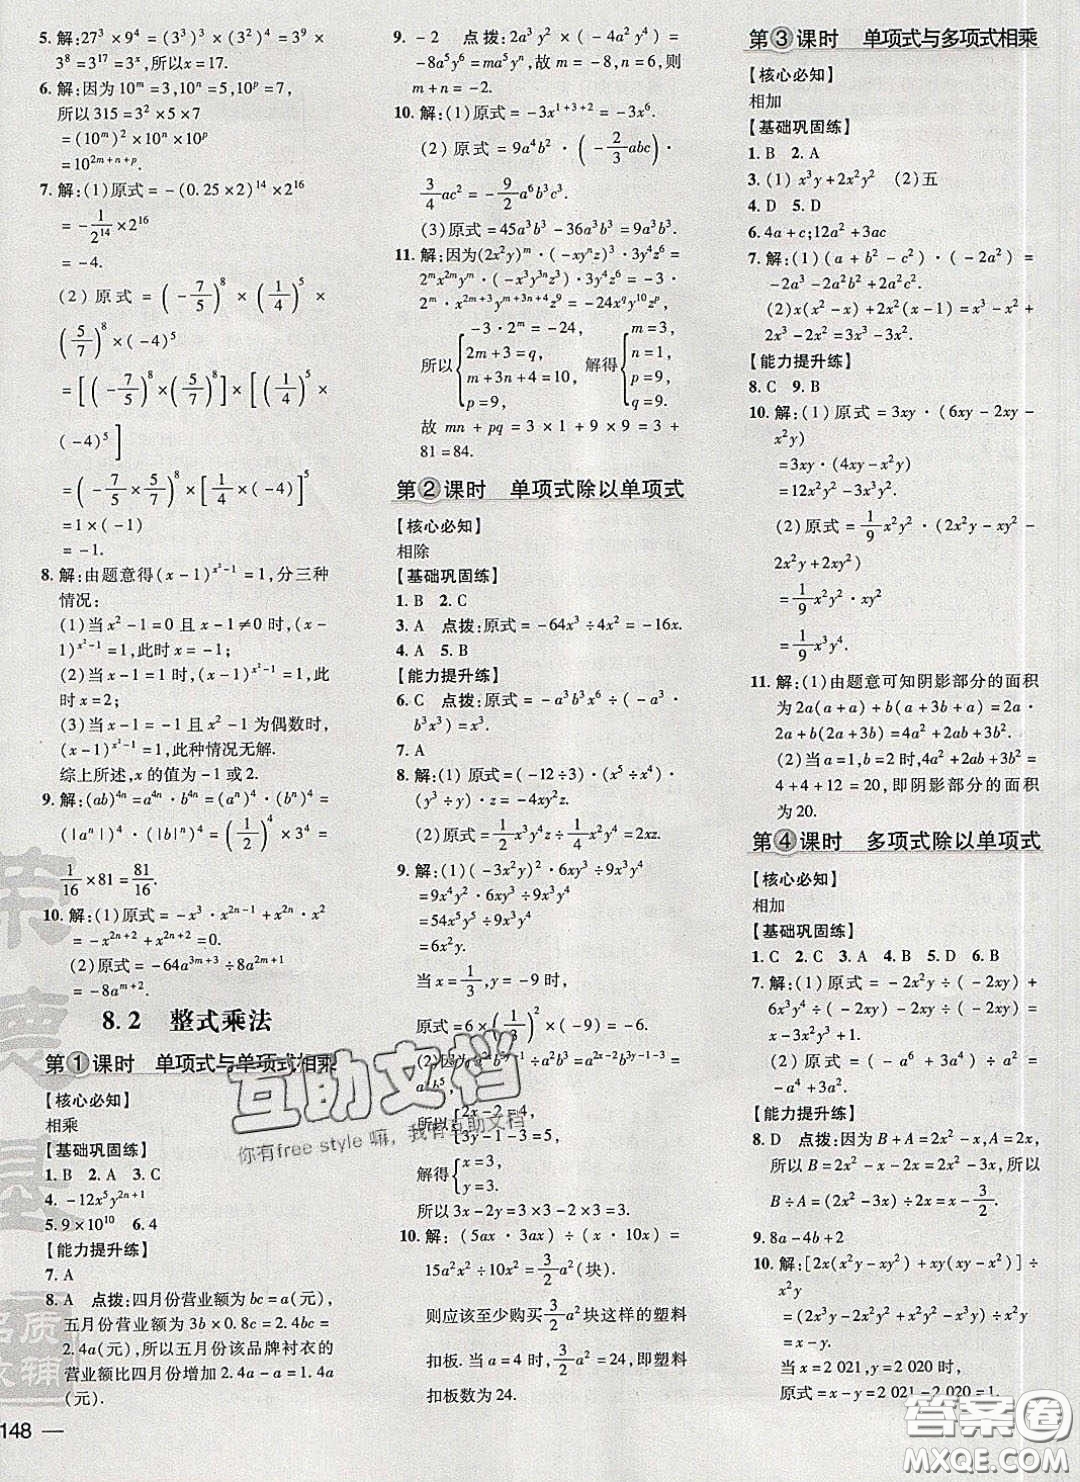 5. 解:27³×9⁴=(3³)³×(3²)⁴=3⁹×
3⁸=3¹⁷=3ˣ,所以x=17.
6. 解:因为10ᵐ=3,10ⁿ=5,10ᵖ=7,
所以315=3²×5×7
=(10ᵐ)²×10ⁿ×10ᵖ
=10²ᵐ⁺ⁿ⁺ᵖ.
7. 解:(1)原式=-(0.25×2)¹⁴×2¹⁶
=-1/2¹⁴×2¹⁶
=-4.
(2)原式=(-7/5)⁸×(1/4)⁵×
(5/7)⁸×(-4)⁵
=[(-7/5)⁸×(5/7)⁸]×[(1/4)⁵×
(-4)⁵]
=(-7/5×5/7)⁸×[1/4×(-4)]⁵
=1×(-1)
=-1.
8. 解:由题意得(x-1)^(x²-1)=1,分三种
情况:
(1)当x²-1=0且x-1≠0时,(x-
1)^(x²-1)=1,此时x=-1;
(2)当x-1=1时,(x-1)^(x²-1)=1,此
时x=2;
(3)当x-1=-1且x²-1为偶数时,
(x-1)^(x²-1)=1,此种情况无解.
综上所述,x的值为-1或2.
9. 解:(ab)⁴ⁿ=a⁴ⁿ·b⁴ⁿ=(aⁿ)⁴·(bⁿ)⁴=
(|aⁿ|)⁴·(|b|ⁿ)⁴=(1/2)⁴×3⁴=
1/16×81=81/16.
10. 解:(1)原式=-x³·x²ⁿ⁻¹+x²ⁿ·x²
=-x²ⁿ⁺²+x²ⁿ⁺²=0.
(2)原式=-64a³ᵐ⁺³÷8a²ᵐ⁺²
=-8aᵐ⁺¹.
8.2 整式乘法
第①课时 单项式与单项式相乘
【核心必知】
相乘
【基础巩固练】
1. B 2. A 3. C
4. -12x⁵y²ⁿ⁺¹
5. 9×10¹⁰ 6. 4
【能力提升练】
7. A
8. A 点拨:四月份营业额为bc=a(元),
五月份营业额为3b×0.8c=2.4bc=
2.4a(元),所以五月份该品牌衬衣的
营业额比四月份增加2.4a-a=1.4a
(元).
148
9. -2 点拨:2a³y²×(-4a²y³)=
-8a⁵y⁵=ma⁵yⁿ,故m=-8,n=6,则
m+n=-2.
10. 解:(1)原式=-3x¹⁺³⁺²=-3x⁶.
(2)原式=9a⁴b²·(-2/3abc)·
3/4ac²=-9/2a⁶b³c³.
(3)原式=45a³b³-36a³b³=9a³b³.
11. 解:因为(2x²y)ᵐ·(-xyⁿz)³·3y⁴z⁶=
2ᵐx²ᵐyᵐ·(-x³y³ⁿz³)·3y⁴z⁶=-3·
2ᵐ·x²ᵐ⁺³yᵐ⁺³ⁿ⁺⁴z⁹=-24x^q y¹⁰zᵖ,
所以{-3·2ᵐ=-24, 2m+3=q, m+3n+4=10, p=9, 解得{m=3, n=1, p=9, q=9.
故mn+pq=3×1+9×9=3+
81=84.
第②课时 单项式除以单项式
【核心必知】
相除
【基础巩固练】
1. B 2. C
3. A 点拨:原式=-64x³÷4x²=-16x.
4. A 5. B
【能力提升练】
6. C 点拨:原式=-a³b³x⁶÷(-a³·
b³x³)=x³.
7. A
8. 解:(1)原式=(-12÷3)·(x⁵÷x⁴)·
(y³÷y)·z=-4xy²z.
(2)原式=2x²y³÷4/9x²y⁴·4/9xyz=2xz.
9. 解:(1)(-3x²y)²·6xy³÷9x³y⁴
=9x⁴y²·6xy³÷9x³y⁴
=54x⁵y⁵÷9x³y⁴
=6x²y.
当x=1/3,y=-9时,
原式=6×(1/3)²×(-9)=-6.
所以{2x-2=4, 3y-1=5,
解得{x=3, y=2.
所以3x-2y=3×3-2×2=5.
10. 解:(5ax·3ax)÷(x·10x)=
15a²x²÷10x²=3/2a²(块).
则应该至少购买3/2a²块这样的塑料
扣板.当a=4时,3/2a²=24,即塑料
扣板数为24.
第③课时 单项式与多项式相乘
【核心必知】
相加
【基础巩固练】
1. B 2. A
3. (1)x³y+2x²y² (2)五
4. D 5. D
6. 4a+c;12a²+3ac
7. 解:(1)(a+b²-c²)·(-2a²)=
-2a³-2a²b²+2a²c².
(2)x(x²-x)+2x²(x-1)=x³-x²+
2x³-2x²=3x³-3x².
【能力提升练】
8. C 9. B
10. 解:(1)原式=3xy·(6xy-2xy-
x²y)
=3xy·(4xy-x²y)
=12x²y²-3x³y².
(2)原式=1/9x²y²·(2x²y-xy²-2x²y+
xy²)
=1/9x²y²·x²y
=1/9x⁴y³.
11. 解:(1)由题意可知阴影部分的面积
为2a(a+a)+b(a+3b+a)=2a·
2a+b(2a+3b)=4a²+2ab+3b².
(2)当a=1,b=2时,4a²+2ab+3b²=
4+4+12=20,即阴影部分的面积
为20.
第④课时 多项式除以单项式
【核心必知】
相加
【基础巩固练】
1. C 2. C 3. A 4. A 5. D 6. B
7. 解:(1)原式=-2x²y÷(-2xy)+
6x³y⁴÷(-2xy)
=x-3x²y³.
(2)原式=(-a⁶+3a⁴)÷a²=
-a⁴+3a².
【能力提升练】
8. D 点拨:因为B+A=2x²-x,A=2x,
所以B=2x²-x-2x=2x²-3x,所以
B÷A=(2x²-3x)÷2x=x-3/2.
9. 8a-4b+2
10. 解:[2x(x²y-xy²)+xy(xy-x²)]÷
x²y
=(2x³y-2x²y²+x²y²-x³y)÷x²y
=x-y.
当x=2 021,y=2 020时,
原式=x-y=2 021-2 020=1.
互助文档
你有free style 嘛,我有互助文档
答案圈
MXQE.COM
品质
教辅